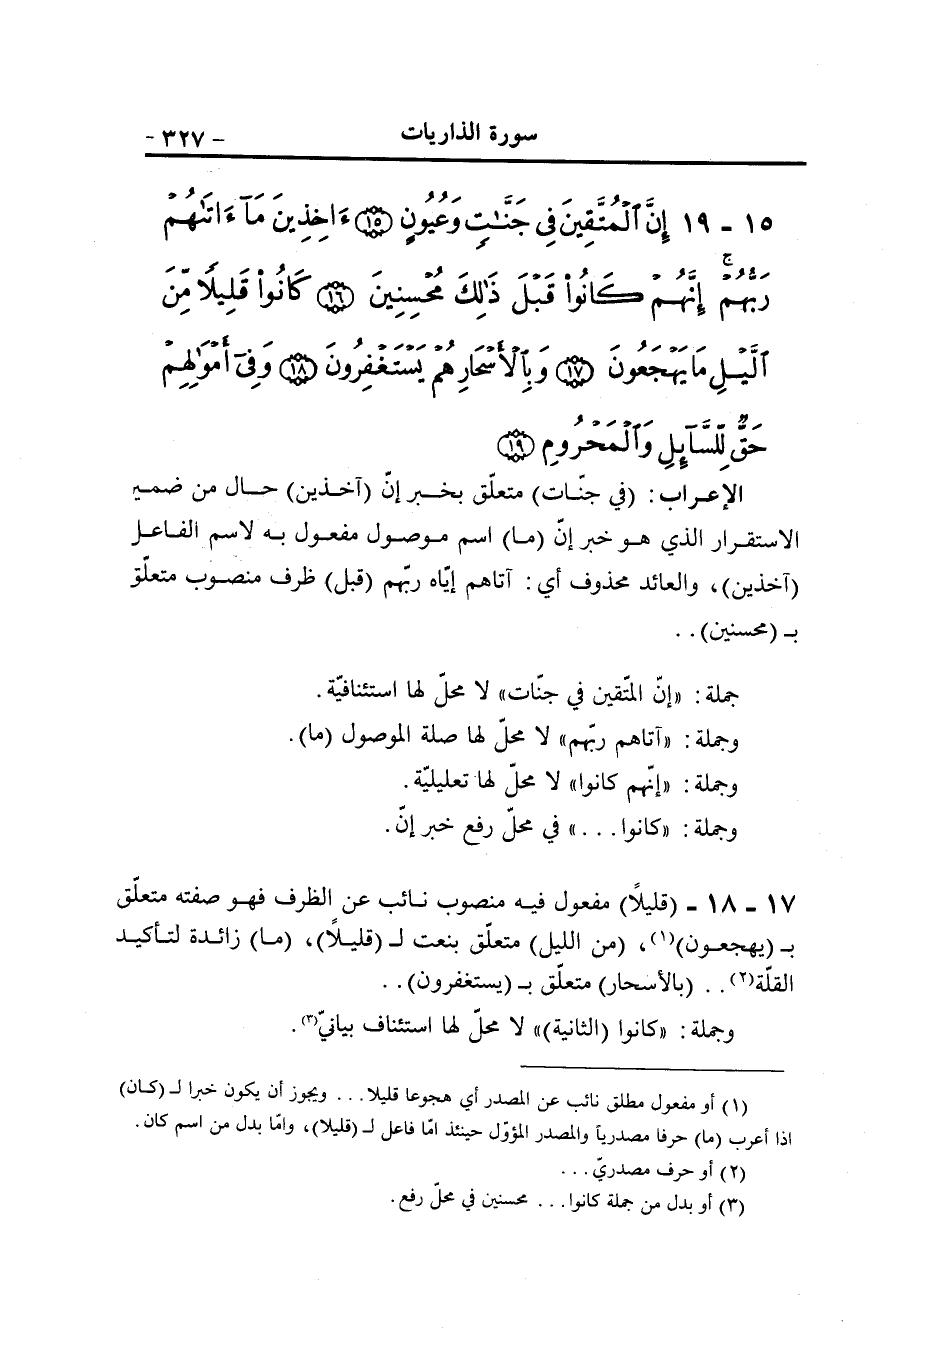 سورة الذاريات - ٣٢٧ -
١٥ - ١٩ إِنَّ ٱلْمُتَّقِينَ فِى جَنَّٰتٍ وَعُيُونٍ ﴿١٥﴾ ءَاخِذِينَ مَآ ءَاتَىٰهُمْ
رَبُّهُمْ ۚ إِنَّهُمْ كَانُوا۟ قَبْلَ ذَٰلِكَ مُحْسِنِينَ ﴿١٦﴾ كَانُوا۟ قَلِيلًا مِّنَ
ٱلَّيْلِ مَا يَهْجَعُونَ ﴿١٧﴾ وَبِٱلْأَسْحَارِ هُمْ يَسْتَغْفِرُونَ ﴿١٨﴾ وَفِىٓ أَمْوَٰلِهِمْ
حَقٌّ لِّلسَّآئِلِ وَٱلْمَحْرُومِ ﴿١٩﴾
الإعراب: (في جنّات) متعلّق بخبر إنّ (آخذين) حال من ضمير
الاستقرار الذي هو خبر إنّ (ما) اسم موصول مفعول به لاسم الفاعل
(آخذين)، والعائد محذوف أي: آتاهم إيّاه ربّهم (قبل) ظرف منصوب متعلّق
بـ (محسنين) . .
جملة: «إنّ المتّقين في جنّات» لا محلّ لها استئنافيّة.
وجملة: «آتاهم ربّهم» لا محلّ لها صلة الموصول (ما).
وجملة: «إنّهم كانوا» لا محلّ لها تعليليّة.
وجملة: «كانوا . . .» في محلّ رفع خبر إنّ.
١٧ - ١٨ - (قليلاً) مفعول فيه منصوب نائب عن الظرف فهو صفته متعلّق
بـ (يهجعون)(١)، (من الليل) متعلّق بنعت لـ (قليلاً)، (ما) زائدة لتأكيد
القلّة(٢) . . (بالأسحار) متعلّق بـ (يستغفرون) . .
وجملة: «كانوا (الثانية)» لا محلّ لها استئناف بيانيّ(٣).
(١) أو مفعول مطلق نائب عن المصدر أي هجوعا قليلا . . . ويجوز أن يكون خبرا لـ (كان)
اذا أعرب (ما) حرفا مصدرياً والمصدر المؤوّل حينئذ امّا فاعل لـ (قليلا)، وامّا بدل من اسم كان.
(٢) أو حرف مصدريّ . . .
(٣) أو بدل من جملة كانوا . . . محسنين في محلّ رفع.